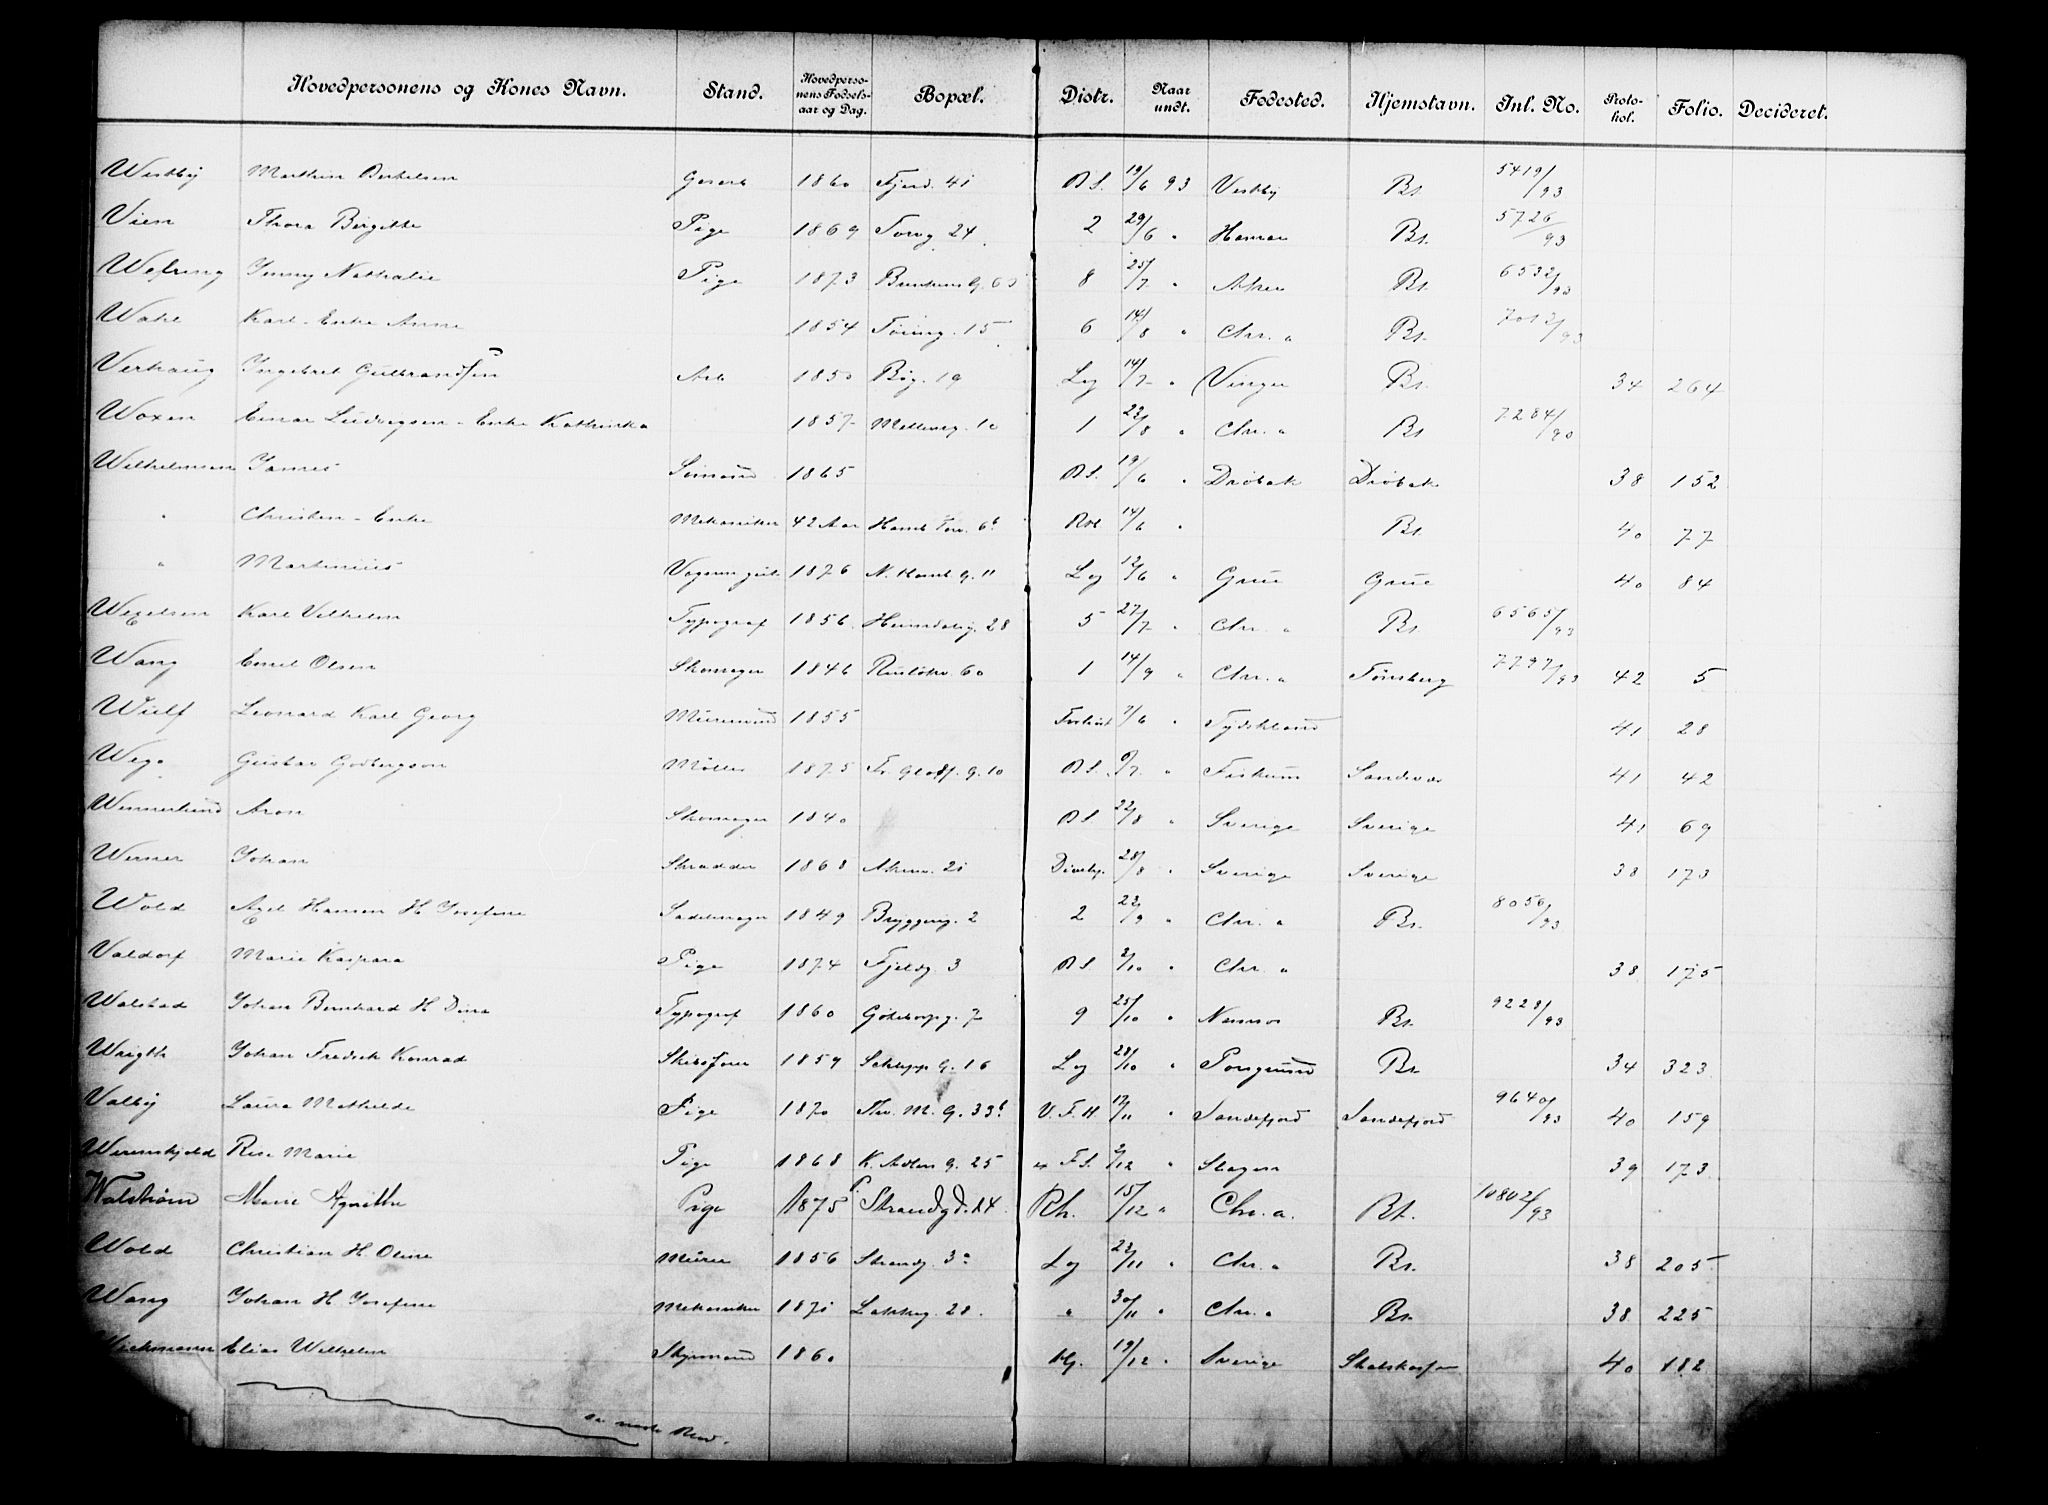 Hovedpersonens og Kones Navn. Stand. Hovedpersonens Fødselsaar og Dag. Bopæl. Distr. Naar undt. Fødested. Hjemstavn. Inl. No. Protokol. Folio. Decideret.
Westby 1860 Fjerd. 41 19/6 93 Vestby Bs. 5419/93
Vien Thora Birgitte Pige 1869 Torvg 24 2 29/6 " Hamar Bs. 5726/93
Wefring Jenny Nathalie Pige 1873 8 25/7 " Aker Bs. 6532/93
Karl - Enke Anne 1854 15 6 14/8 " Chr. a Bs. 7012/93
Verhaug Ingebret Gulbrandsen Arb 1850 Bög. 19 Lög 14/7 " Vinger Bs. 34 264
Woxen Einar Ludvigsen - Enke Kathinka 1857 Möllerg. 10 1 23/8 " Chr. a Bs 7284/90
Wilhelmsen James Sömand 1865 19/6 " Dröbak Dröbak 38 152
" Christen - Enke Mekaniker 42 Aar 14/6 " Bs. 40 77
" Martinius 1876 11 Lög 12/6 " Grue Grue 40 84
Wexelsen Karl Vilhelm Typograf 1856 Heimdalsg. 28 5 27/7 " Chr. a Bs. 6565/93
Wang Emil Olsen Skomager 1846 60 1 14/9 " Chr. a Tönsberg 7797/93 42 5
Wulf Leonard Karl Georg Murmand 1855 7/6 " Tydskland 41 28
Gustav Möller 1875 10 " Fiskum 41 42
Wennerlund Aron Skomager 1840 22/8 " Sverige Sverige 41 69
Werner Johan Skrædder 1868 28/8 " Sverige Sverige 38 173
Wold Axel Hansen H Josefine Sadelmager 1849 Bryggerg. 2 2 22/9 " Chr. a Bs. 8056/93
Valdorf Marie Kaspara Pige 1874 Fjeldg 3 2/10 " Chr. a 38 175
Walstad Johan Bernhard H Dina Typograf 1860 Göteborgg. 7 9 25/10 " Namsos Bs. 9228/93
Wrigth Johan Fredrik Konrad Skibsförer 1859 Schwepp G. 16 Lög 28/10 " Porsgrund Bs. 34 323
Valby Laura Mathilde Pige 1870 Thv. M. G. 33b V. F. H. 17/11 " Sandefjord Sandefjord 9640/93 40 159
Werenskjold Marie Pige 1868 K. Adlers G. 25 2/12 " Slagen 39 173
Walström Marie Agnethe Pige 1875 Rh. 15/12 " Chr. a. Bs. 10802/93
Wold Christian H. Oline Murer 1856 Strandg. Lög 22/11 " Chr. a Bs. 38 205
Wang Johan H. Josefine Mekaniker 1871 Lakkeg. 28. " 30/11 " Chr. a Bs. 38 225
Wichmann Elias Wilhelm 1860 19/12 " Sverige 40 182